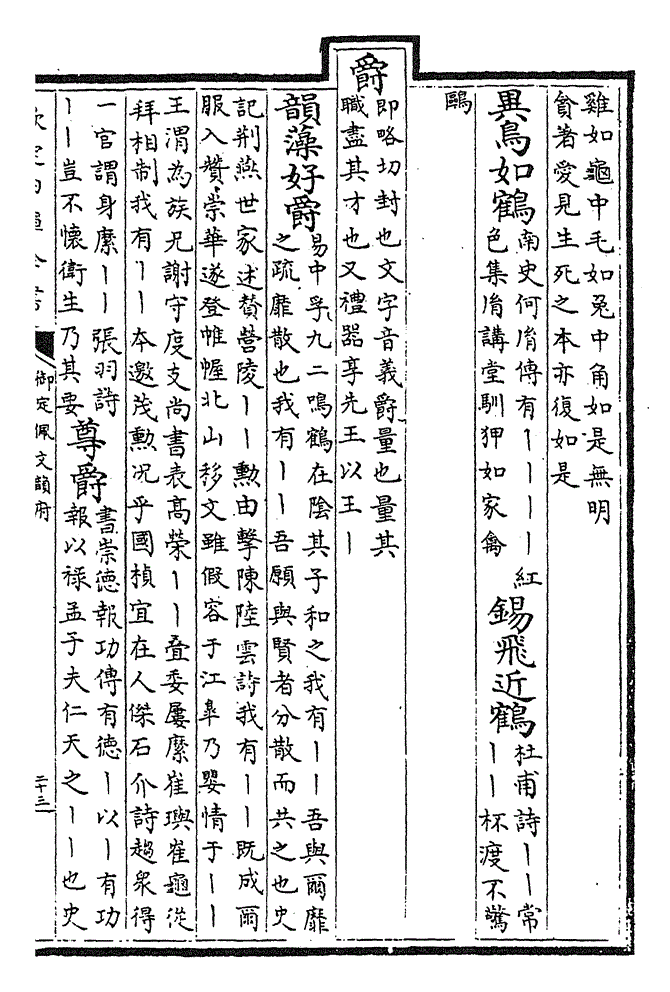 雞如龜中毛如兔中角如是無明
貪著愛見生死之本亦復如是
異鳥如鶴南史何𦙍傳有丨丨丨丨紅
色集𦙍講堂馴狎如家禽
錫飛近鶴杜甫詩丨丨常
丨丨杯渡不驚
鷗
爵
即略切封也文字音義爵量也量其
職盡其才也又禮器享先王以玉丨
韻藻好爵易中孚九二鳴鶴在陰其子和之我有丨丨吾與爾靡
之疏靡散也我有丨丨吾願與賢者分散而共之也史
記荆燕世家述贊營陵丨丨勲由擊陳陸雲詩我有丨丨既成爾
服入贊崇華遂登帷幄北山移文雖假容于江臯乃嬰情于丨丨
王渭為族兄謝守度支尚書表高榮丨丨叠委屢縻崔璵崔龜從
拜相制我有丨丨本邀茂勲况乎國楨宜在人傑石介詩趨衆得
一官謂身縻丨丨張羽詩
丨丨豈不懷衛生乃其要
尊爵書崇德報功傳有德丨以丨有功
報以祿孟子夫仁天之丨丨也史
欽定四庫全書
御定佩文韻府
二十三